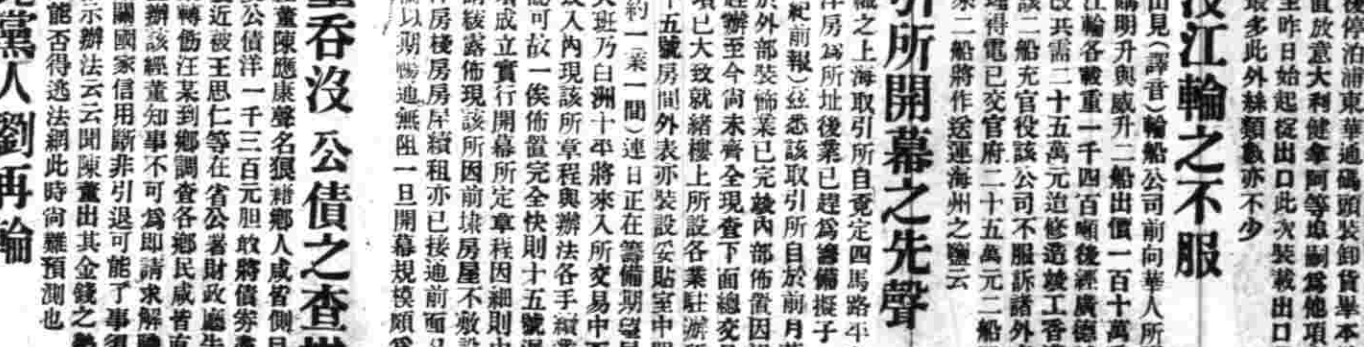 後停泊浦東華通碼頭裝卸貨畢本
值放意大利健拿阿等埠嗣爲他項
至昨日始起掟出口此次裝載出口
最多此外絲類數亦不少
沒江輪之不服
出見(譯音)輪船公司前向華人所
購明升與威升二船出價一百十萬
江輪各載重一千四百噸後經廣德
改共需二十五萬元逭修造竣工香港
該二船充官役該公司不服訴諸外
瑞得電已交官府二十五萬元二船
來二船將作送運海州之鹽云
引所開幕之先聲
織之上海取引所自查定四馬路平
洋房爲所址後業已趕爲籌備擬子
紀前報)茲悉該取引所自於前月
於外部裝飾業已完竣內部佈置因
趕辦至今尙未齊全現查下面總交
項已大致就緒樓上所設各業駐辦
十五號房間外表亦裝設妥貼室中
約一業一間)連日正在籌備期望
大班乃白洲十年將來入所交易中
故入內現該所章程與辦法各手續
認可故一俟佈置完全快則十五號
續成立實行開幕所定章程因細則
胡紋露佈現該所因前埭房屋不敷
弄房棧房房屋續租亦已接通前面
幅以期暢通無阻一旦開幕規模頗
董吞沒 公債之查
莊董陳應康聲名狠藉鄉人咸皆側目
災公債洋一千三百元胆敢將債劵
近被王思仁等在省公署財政廳
轉飭汪某到鄉調查各鄉民咸皆
辦該經董知事不可爲卽請求解
關國家信用斷非引退可能了事
示辦法云云聞陳董出其金錢之
能否得逃法網此時尙難預測也
黨人劉再輪